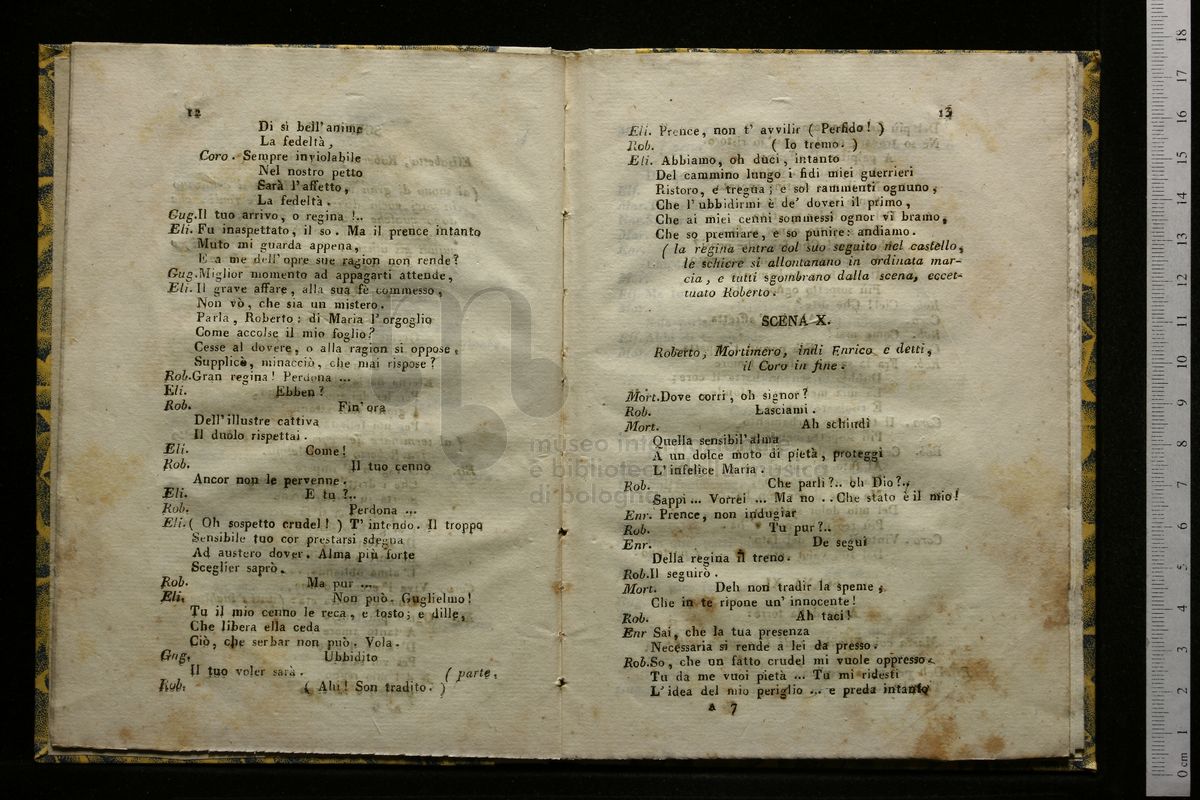 12
Di sì bell'anime
La fedeltà,
Coro. Sempre inviolabile
Nel nostro petto
Sarà l'affetto,
La fedeltà.
Gug. Il tuo arrivo, o regina!..
Eli. Fu inaspettato, il so. Ma il prence intanto
Muto mi guarda appena,
E a me dell'opre sue ragion non rende?
Gug. Miglior momento ad appagarti attende,
Eli. Il grave affare, alla sua fè commesso,
Non vò, che sia un mistero.
Parla, Roberto: di Maria l'orgoglio
Come accolse il mio foglio?
Cesse al dovere, o alla ragion si oppose,
Supplicè, minacciò, che mai rispose?
Rob. Gran regina! Perdona ...
Eli. Ebben?
Rob. Fin'ora
Dell'illustre cattiva
Il duolo rispettai.
Eli. Come!
Rob. Il tuo cenno
Ancor non le pervenne.
Eli. E tu?..
Rob. Perdona ...
Eli. ( Oh sospetto crudel! ) T'intendo. Il troppo
Sensibile tuo cor prestarsi sdegna
Ad austero dover. Alma più forte
Sceglier saprò.
Rob. Ma pur ....
Eli. Non può. Guglielmo!
Tu il mio cenno le reca, e tosto; e dille,
Che libera ella ceda
Ciò, che serbar non può. Vola.
Gug. Ubbidito
Il tuo voler sarà. ( parte.
Rob. ( Ahi! Son tradito. )
13
Eli. Prence, non t'avvilir ( Perfido! )
Rob. ( Io tremo. )
Eli. Abbiamo, oh duci, intanto
Del cammino lungo i fidi miei guerrieri
Ristoro, e tregua; e sol rammenti ognuno,
Che l'ubbidirmi è de' doveri il primo,
Che ai miei cenni sommessi ognor vi bramo,
Che so premiare, e so punire: andiamo.
( la regina entra col suo seguito nel castello,
le schiere si allontanano in ordinata mar-
cia, e tutti sgombrano dalla scena, eccet-
tuato Roberto.
SCENA X.
Roberto, Mortimero, indi Enrico e detti,
il Coro in fine.
Mort. Dove corri, oh signor?
Rob. Lasciami.
Mort. Ah schiudi
Quella sensibil'alma
A un dolce moto di pietà, proteggi
L'infelice Maria.
Rob. Che parli?.. oh Dio?..
Sappi ... Vorrei ... Ma no .. Che stato è il mio!
Enr. Prence, non indugiar
Rob. Tu pur?..
Enr. De segui
Della regina il treno.
Rob. Il seguirò.
Mort. Deh non tradir la speme,
Che in te ripone un'innocente!
Rob. Ah taci!
Enr Sai, che la tua presenza
Necessaria si rende a lei da presso.
Rob. So, che un fatto crudel mi vuole oppresso.
Tu da me vuoi pietà ... Tu mi ridesti
L'idea del mio periglio ... e preda intanto
a 7
museo
e biblioteca
di bologna
0 cm 1 2 3 4 5 6 7 8 9 10 11 12 13 14 15 16 17 18